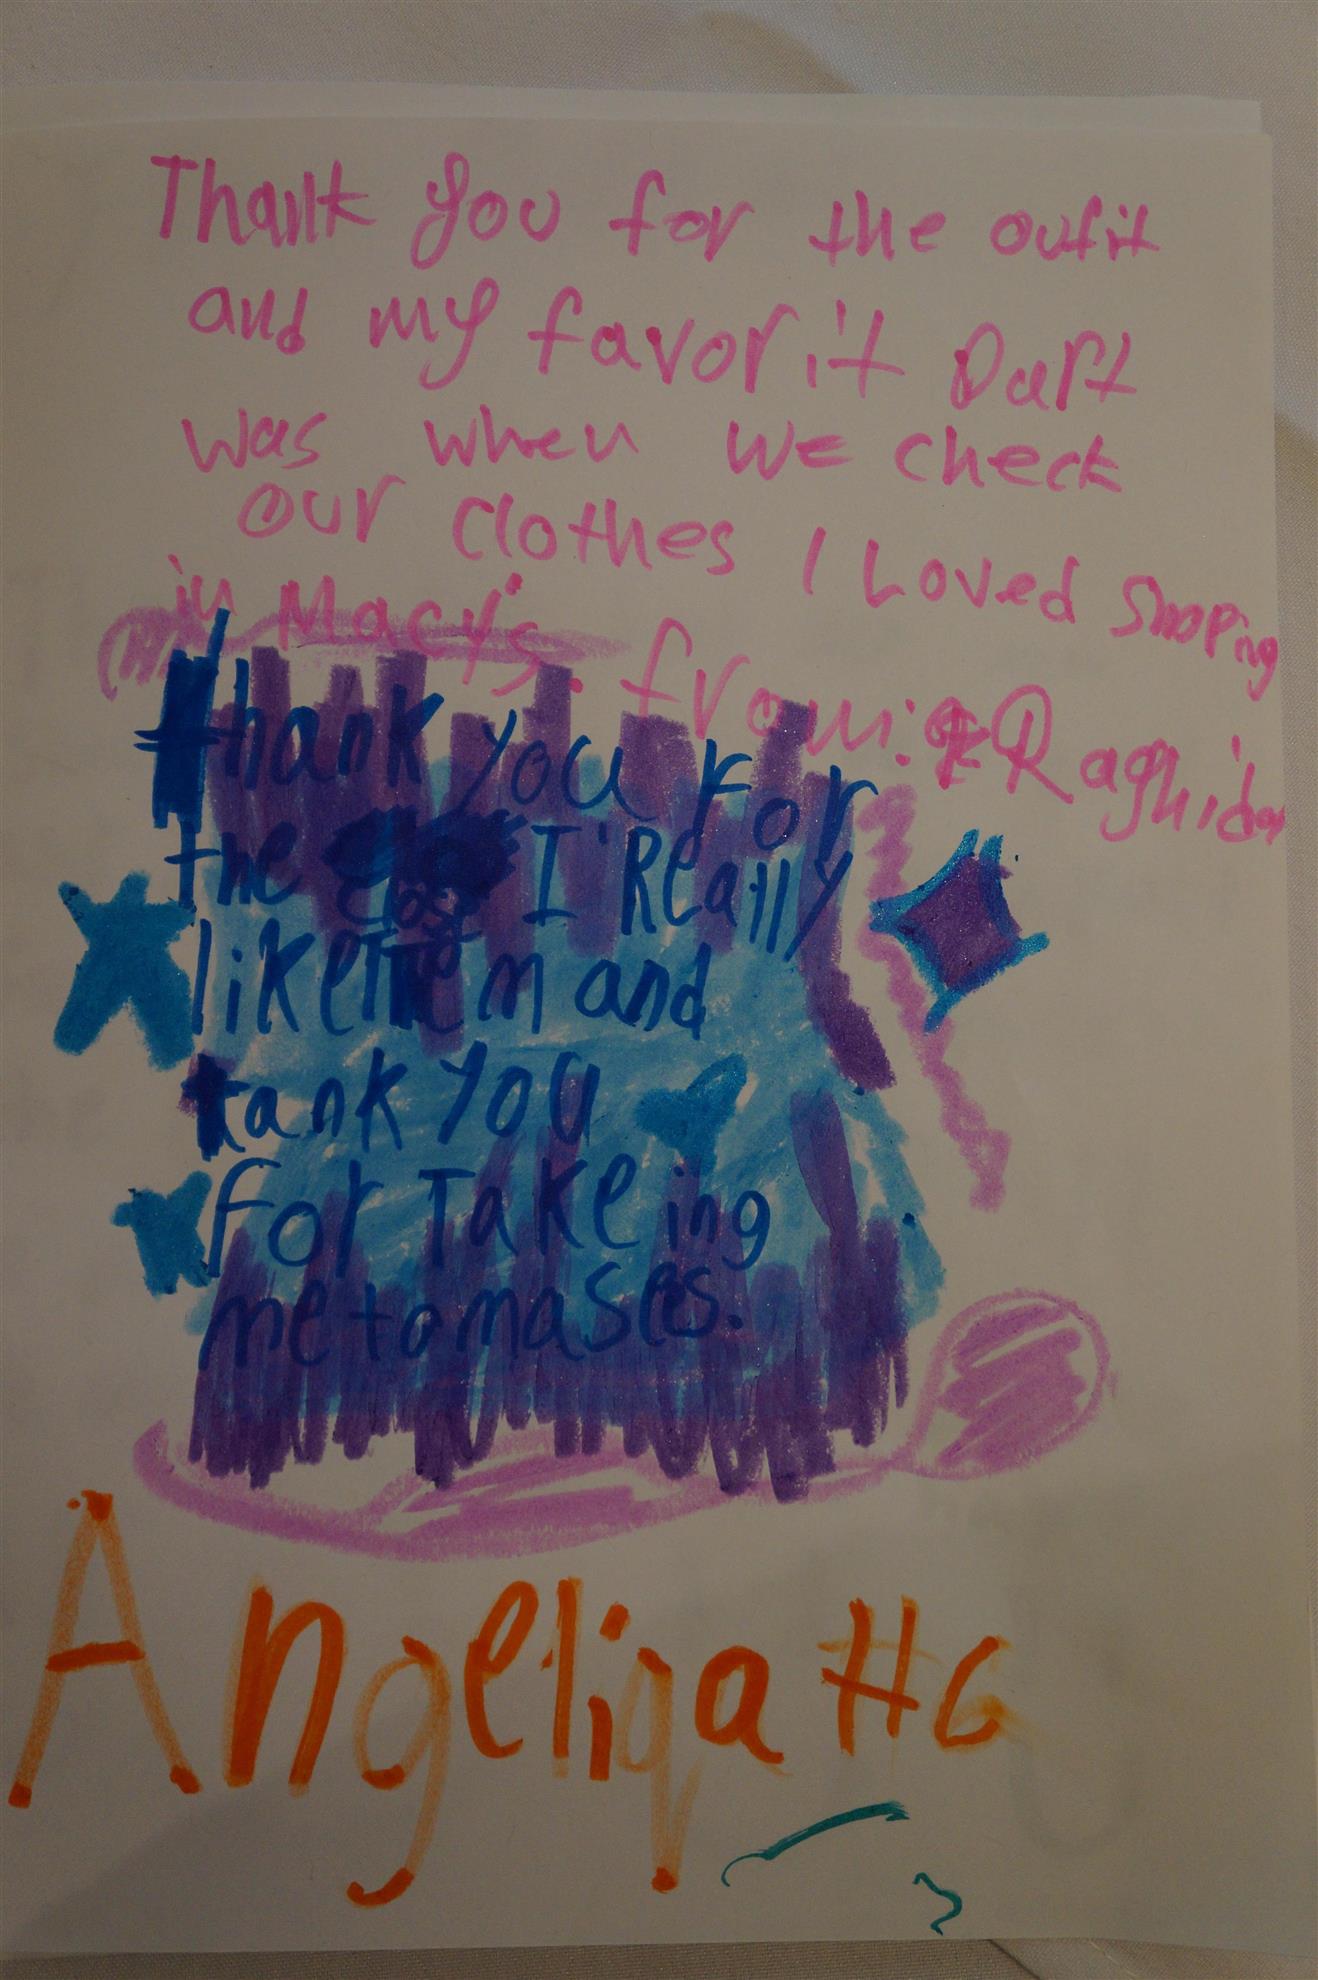 Thank you for the oufit
and my favorit Part
was when we check
our clothes I Loved Shoping
in Macy's. from: Raghida
thank you For
the close I Really
like them and
tank you
for Take ing
me to mases.
Angeliqa #6